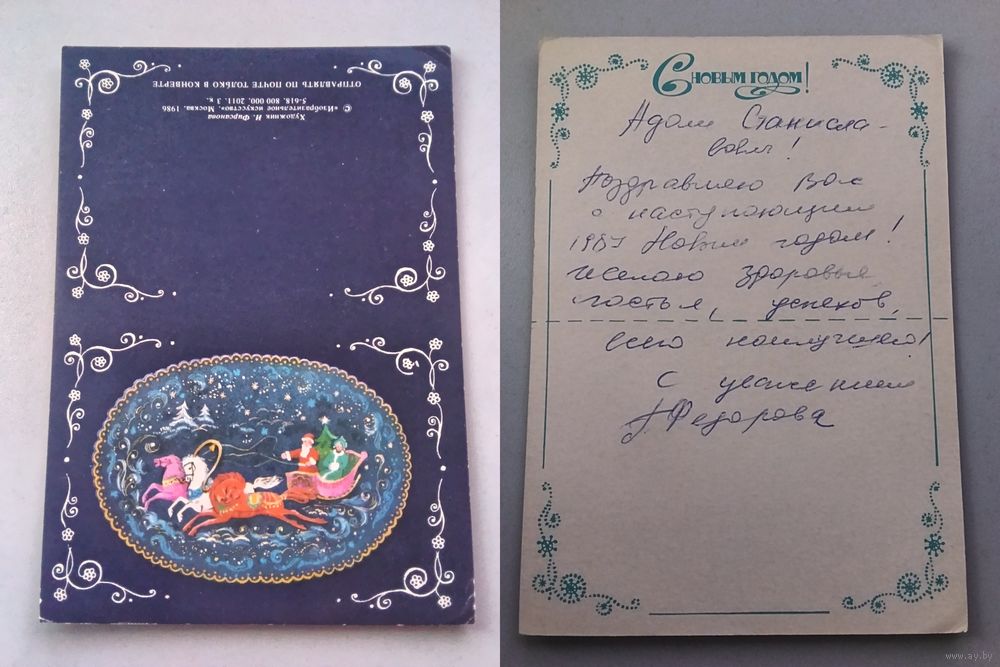 Художник И. Фирсанова
© «Изобразительное искусство». Москва. 1986
5-618. 800 000. 2011. 3 к.
ОТПРАВЛЯТЬ ПО ПОЧТЕ ТОЛЬКО В КОНВЕРТЕ
С НОВЫМ ГОДОМ!
Станисла-
вович!
Поздравляю Вас
с наступающим
1987 Новым годом!
Желаю здоровья
счастья, успехов,
всего наилучшего!
С уважением
Федорова
www.ay.by